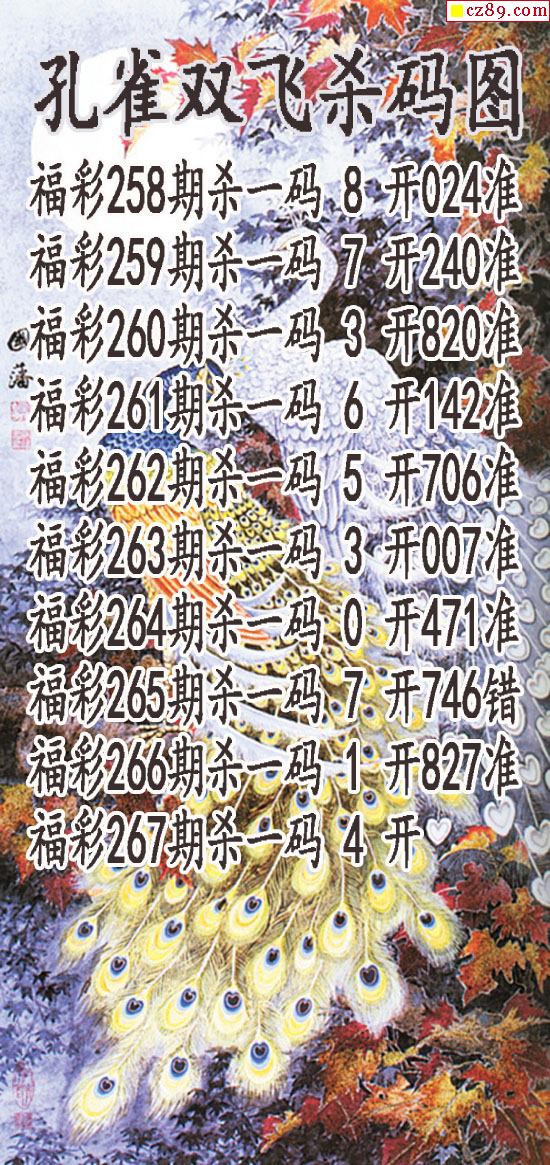 cz89.com
孔雀双飞杀码图
福彩258期杀一码 8 开024准
福彩259期杀一码 7 开240准
福彩260期杀一码 3 开820准
福彩261期杀一码 6 开142准
福彩262期杀一码 5 开706准
福彩263期杀一码 3 开007准
福彩264期杀一码 0 开471准
福彩265期杀一码 7 开746错
福彩266期杀一码 1 开827准
福彩267期杀一码 4 开
國藩